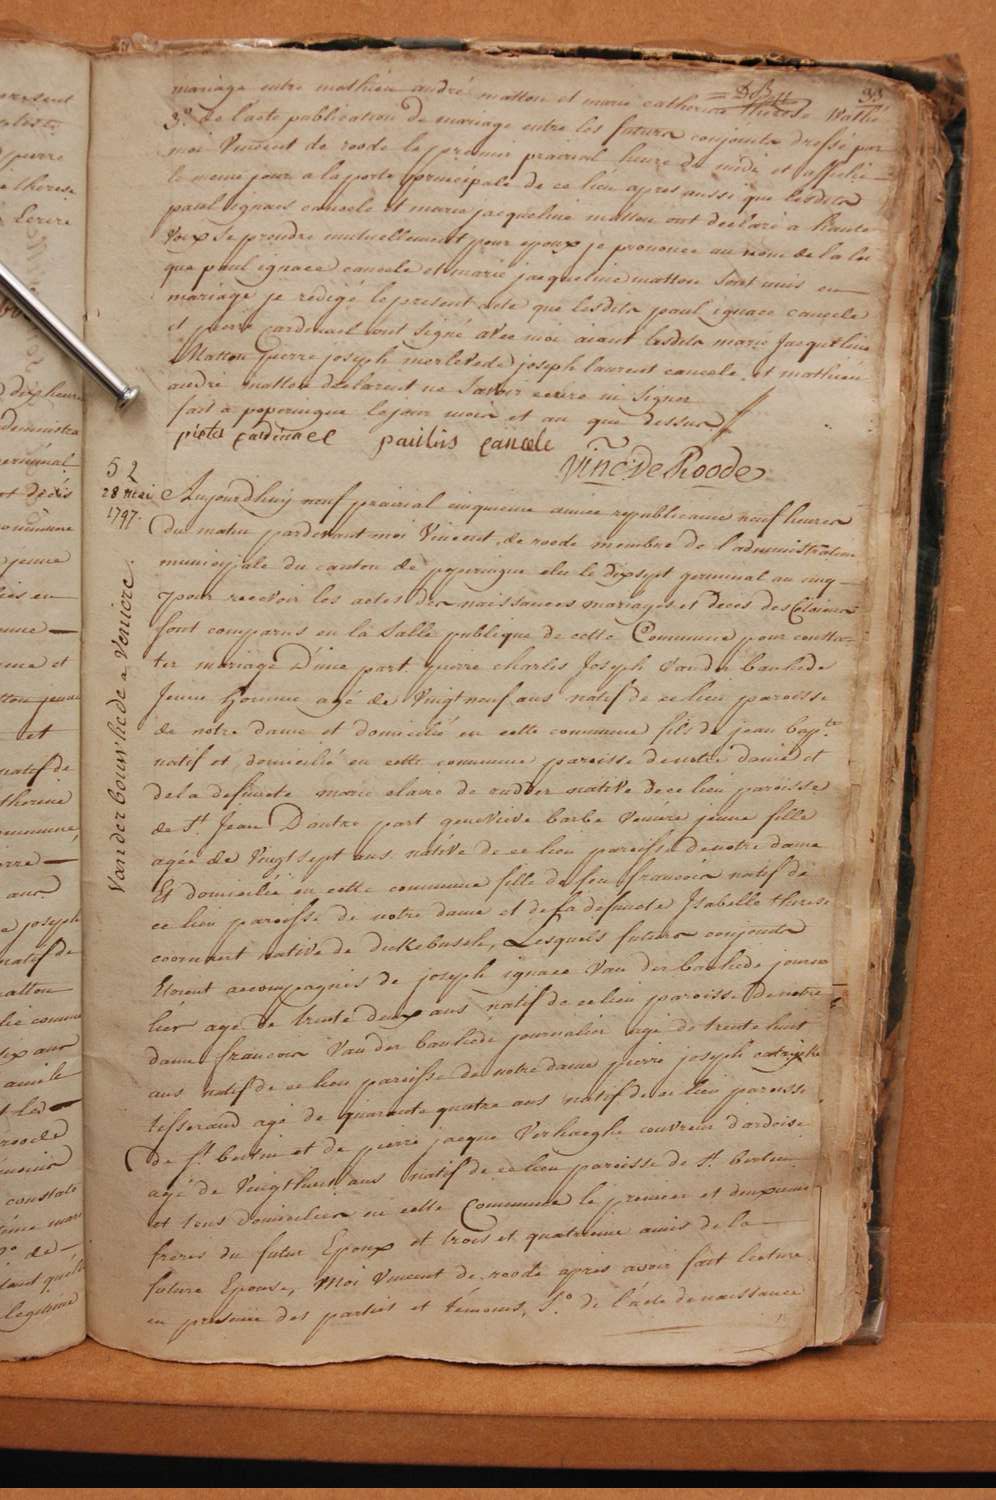 33
mariage entre mathieu andré matton et marie catherine therese Wathé
3.° de l'acte publication de mariage entre les futurs conjoints dressé par
moi Vincent de roode le premier prairial heure de midi et affiché
le meme jour a la porte principale de ce lieu apres aussi que lesdits
paul ignace cancele et marie jacqueline matton ont declaré a haute
voix se prendre mutuellement pour epoux je prononce au nom de la loi
que paul ignace cancele et marie jacqueline matton sont unis en
mariage je redigé le present acte que lesdits paul ignace cancele
et pierre cardinael ont signé avec moi aiant lesdits marie Jacqueline
Matton pierre joseph merlevede joseph laurent cancele et mathieu
andré matton declarent ne Savoir ecrire ni Signer
fait a poperingue le jour mois et an que dessus
pieter cardinael paulus cancele
Vinc: De Roode
52
28 mei
1797.
Van der bouw'hede a Veniere.
Aujourdhuij neuf prairial cinquieme année republicaine neuf heures
du matin pardevant moi Vincent de roode membre de l'administration
municipale du canton de poperingue elu le dixsept germinal an cinq
pour recevoir les actes des naissances mariages et deces des Citoiens
sont comparus en la Salle publique de cette Commune pour consta-
ter mariage D'une part pierre charles Joseph Vander bauhede
Jeune homme agé de Vingt neuf ans natif de ce lieu paroisse
de notre dame et domicilié en cette commune fils de jean bap.te
natif et domicilié en cette commune paroisse de notre dame et
de la defuncte marie claire de natived de ce lieu paroisse
de S.t Jean D'autre part genevieve barbe Veniere jeune fille
agée de Vingt sept ans native de ce lieu paroisse de notre dame
Et domiciliée en cette commune fille de feu francois natif de
ce lieu paroisse de notre dame et de la defuncte Isabelle therese
coornaert native de dickebusch, Lesquels futurs conjoints
etoient accompagnés de joseph ignace Van der bauhede journa
lier agé de trente deux ans natif de ce lieu paroisse de notre
dame francois Van der bauhede journalier agé de trente huit
ans natif de ce lieu paroisse de notre dame pierre joseph catrijsse
tisserand agé de quarante quatre ans natif de ce lieu paroisse
de S.t bertin et de pierre jacque Verhaeghe couvreur d'ardoise
agé de Vingthuit ans natif de ce lieu paroisse de S.t bertin
et tous domiciliés en cette Commune le premier et deuxieme
freres du futur Epoux et trois et quatrieme amis de la
future Epouse, Moi Vincent de roode apres avoir fait lecture
en presence des parties et temoins, 1.° de l'acte de naissance